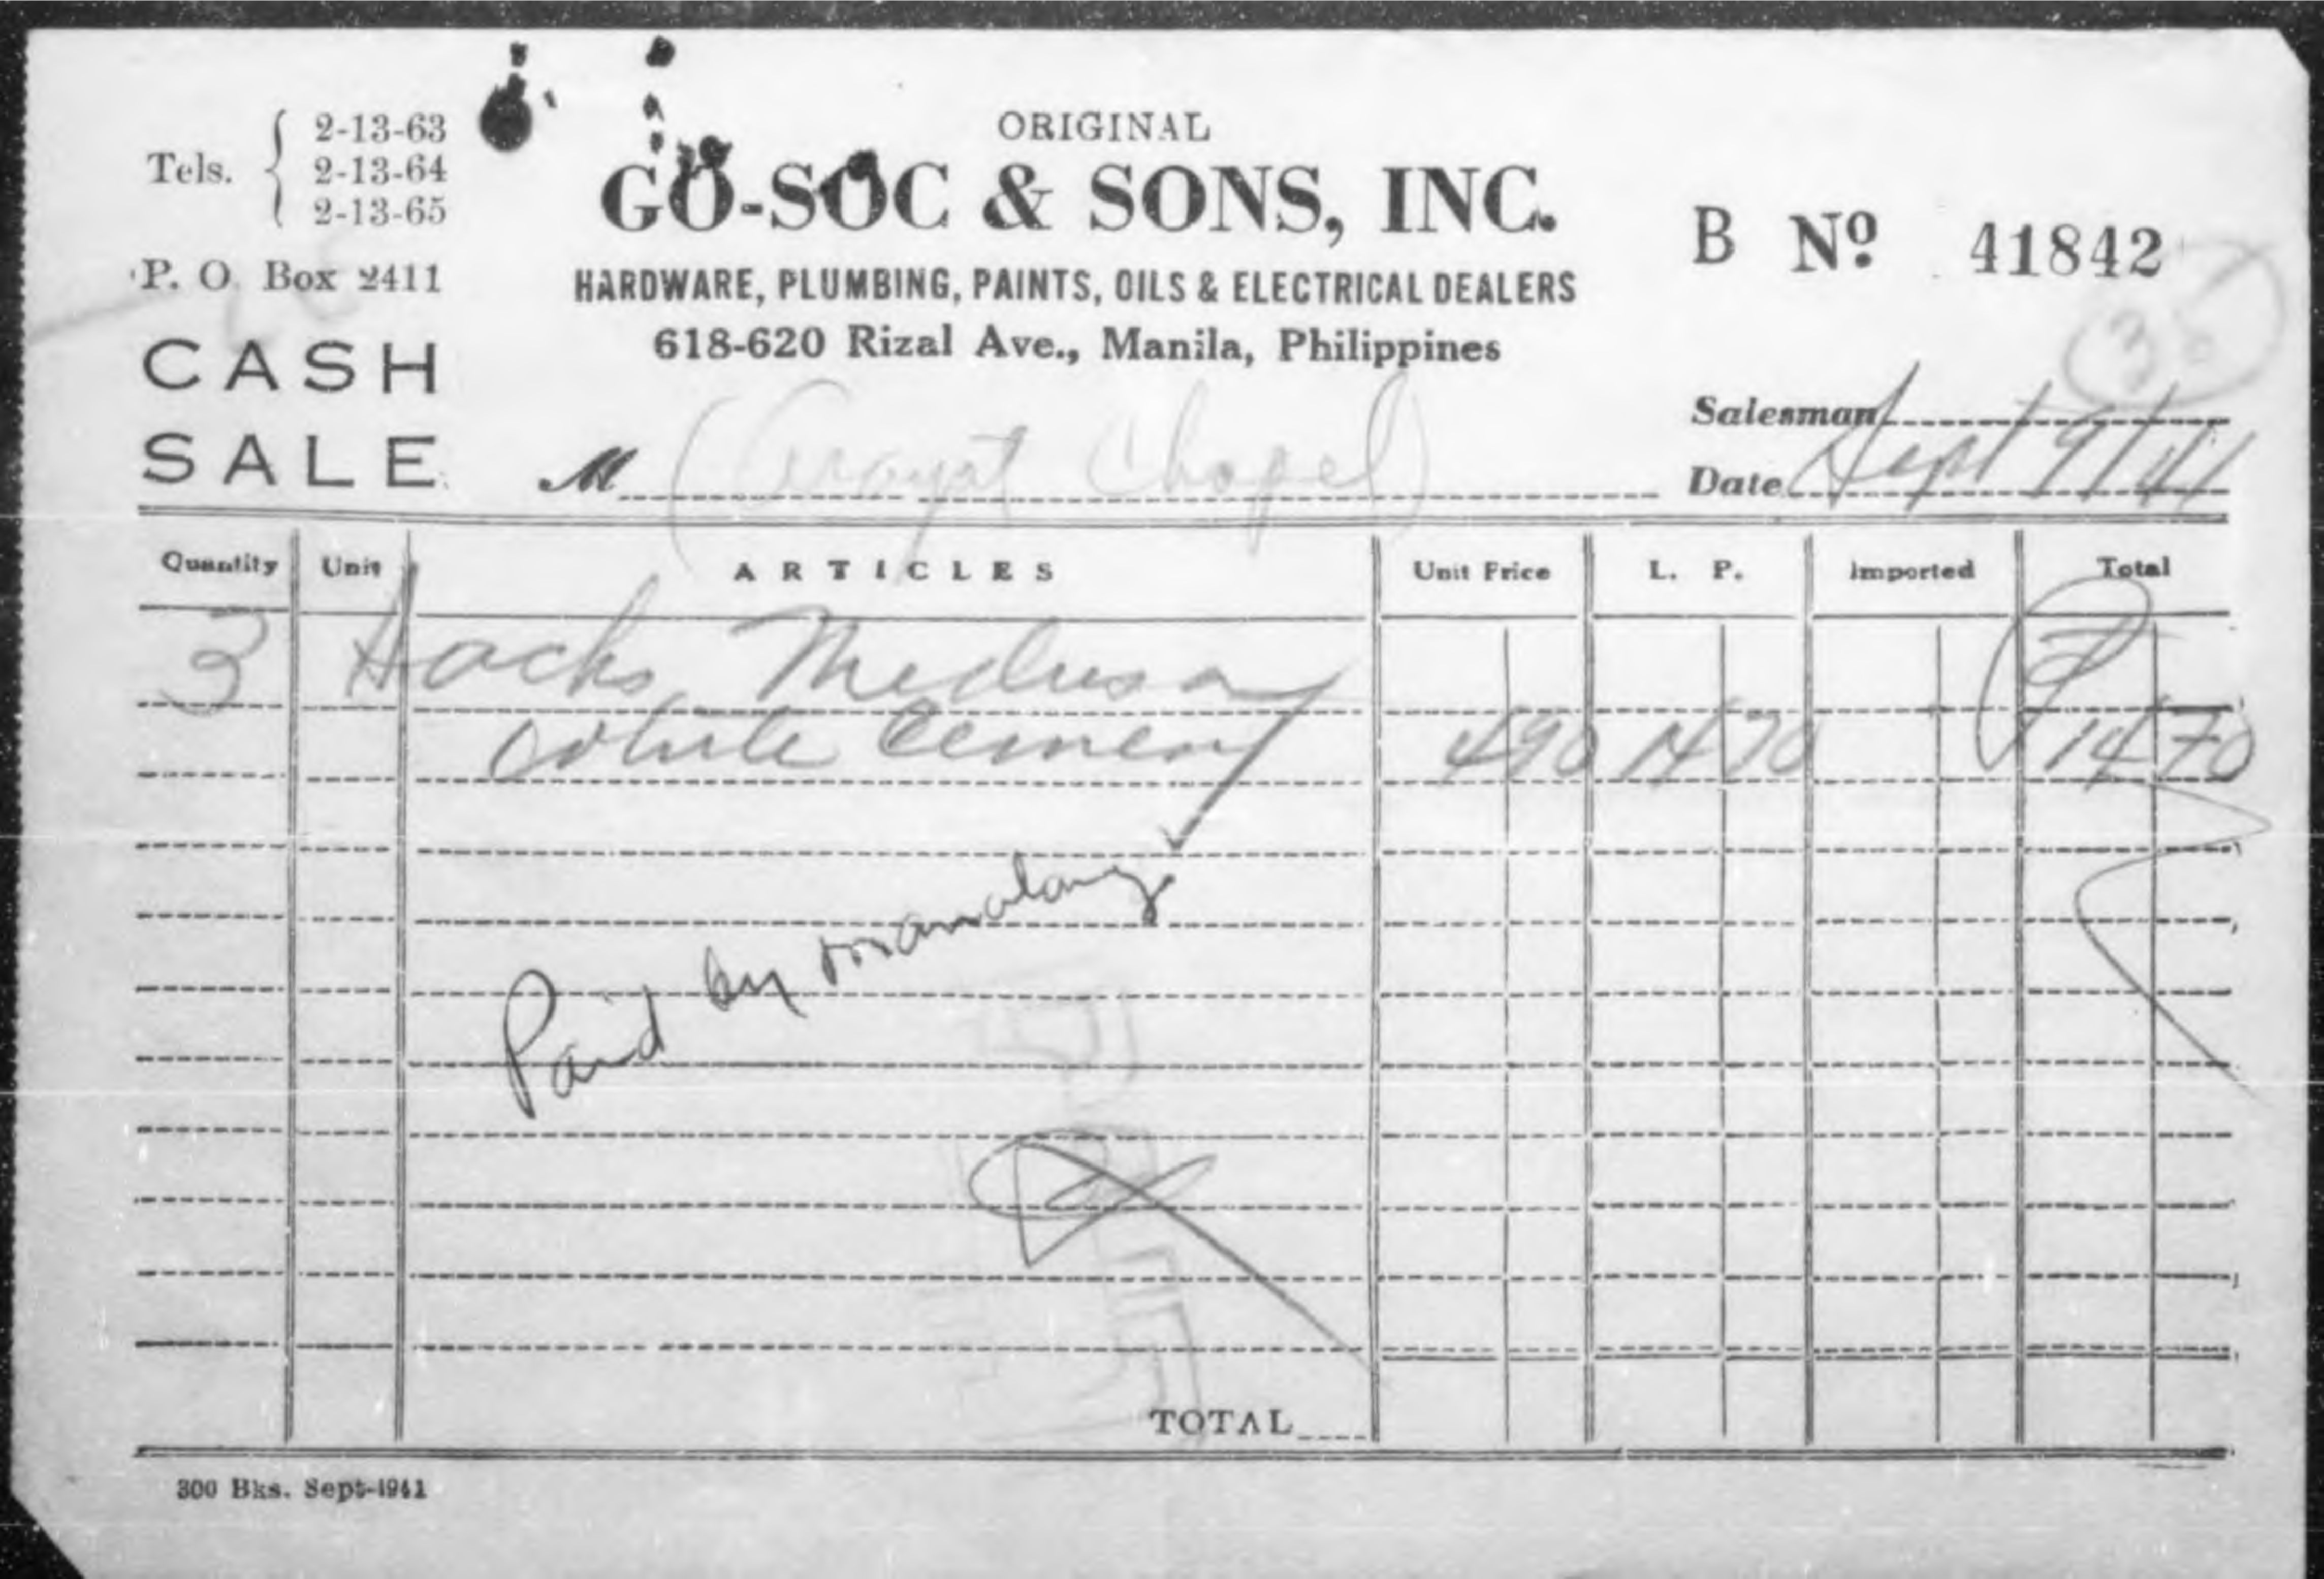 Tels. 2-13-63
2-13-64
2-13-65
P. O. Box 2411
CASH
SALE
ORIGINAL
GO-SOC & SONS, INC.
HARDWARE, PLUMBING, PAINTS, OILS & ELECTRICAL DEALERS
618-620 Rizal Ave., Manila, Philippines
B Nº 41842
Salesman
M (Arayat Chapel)
Date Sept 9/41
Quantity Unit ARTICLES Unit Price L. P. Imported Total
3 Sacks Medusa
White Cement 490 1470 ₱1470
Paid by mamalang
TOTAL
300 Bks. Sept-1941